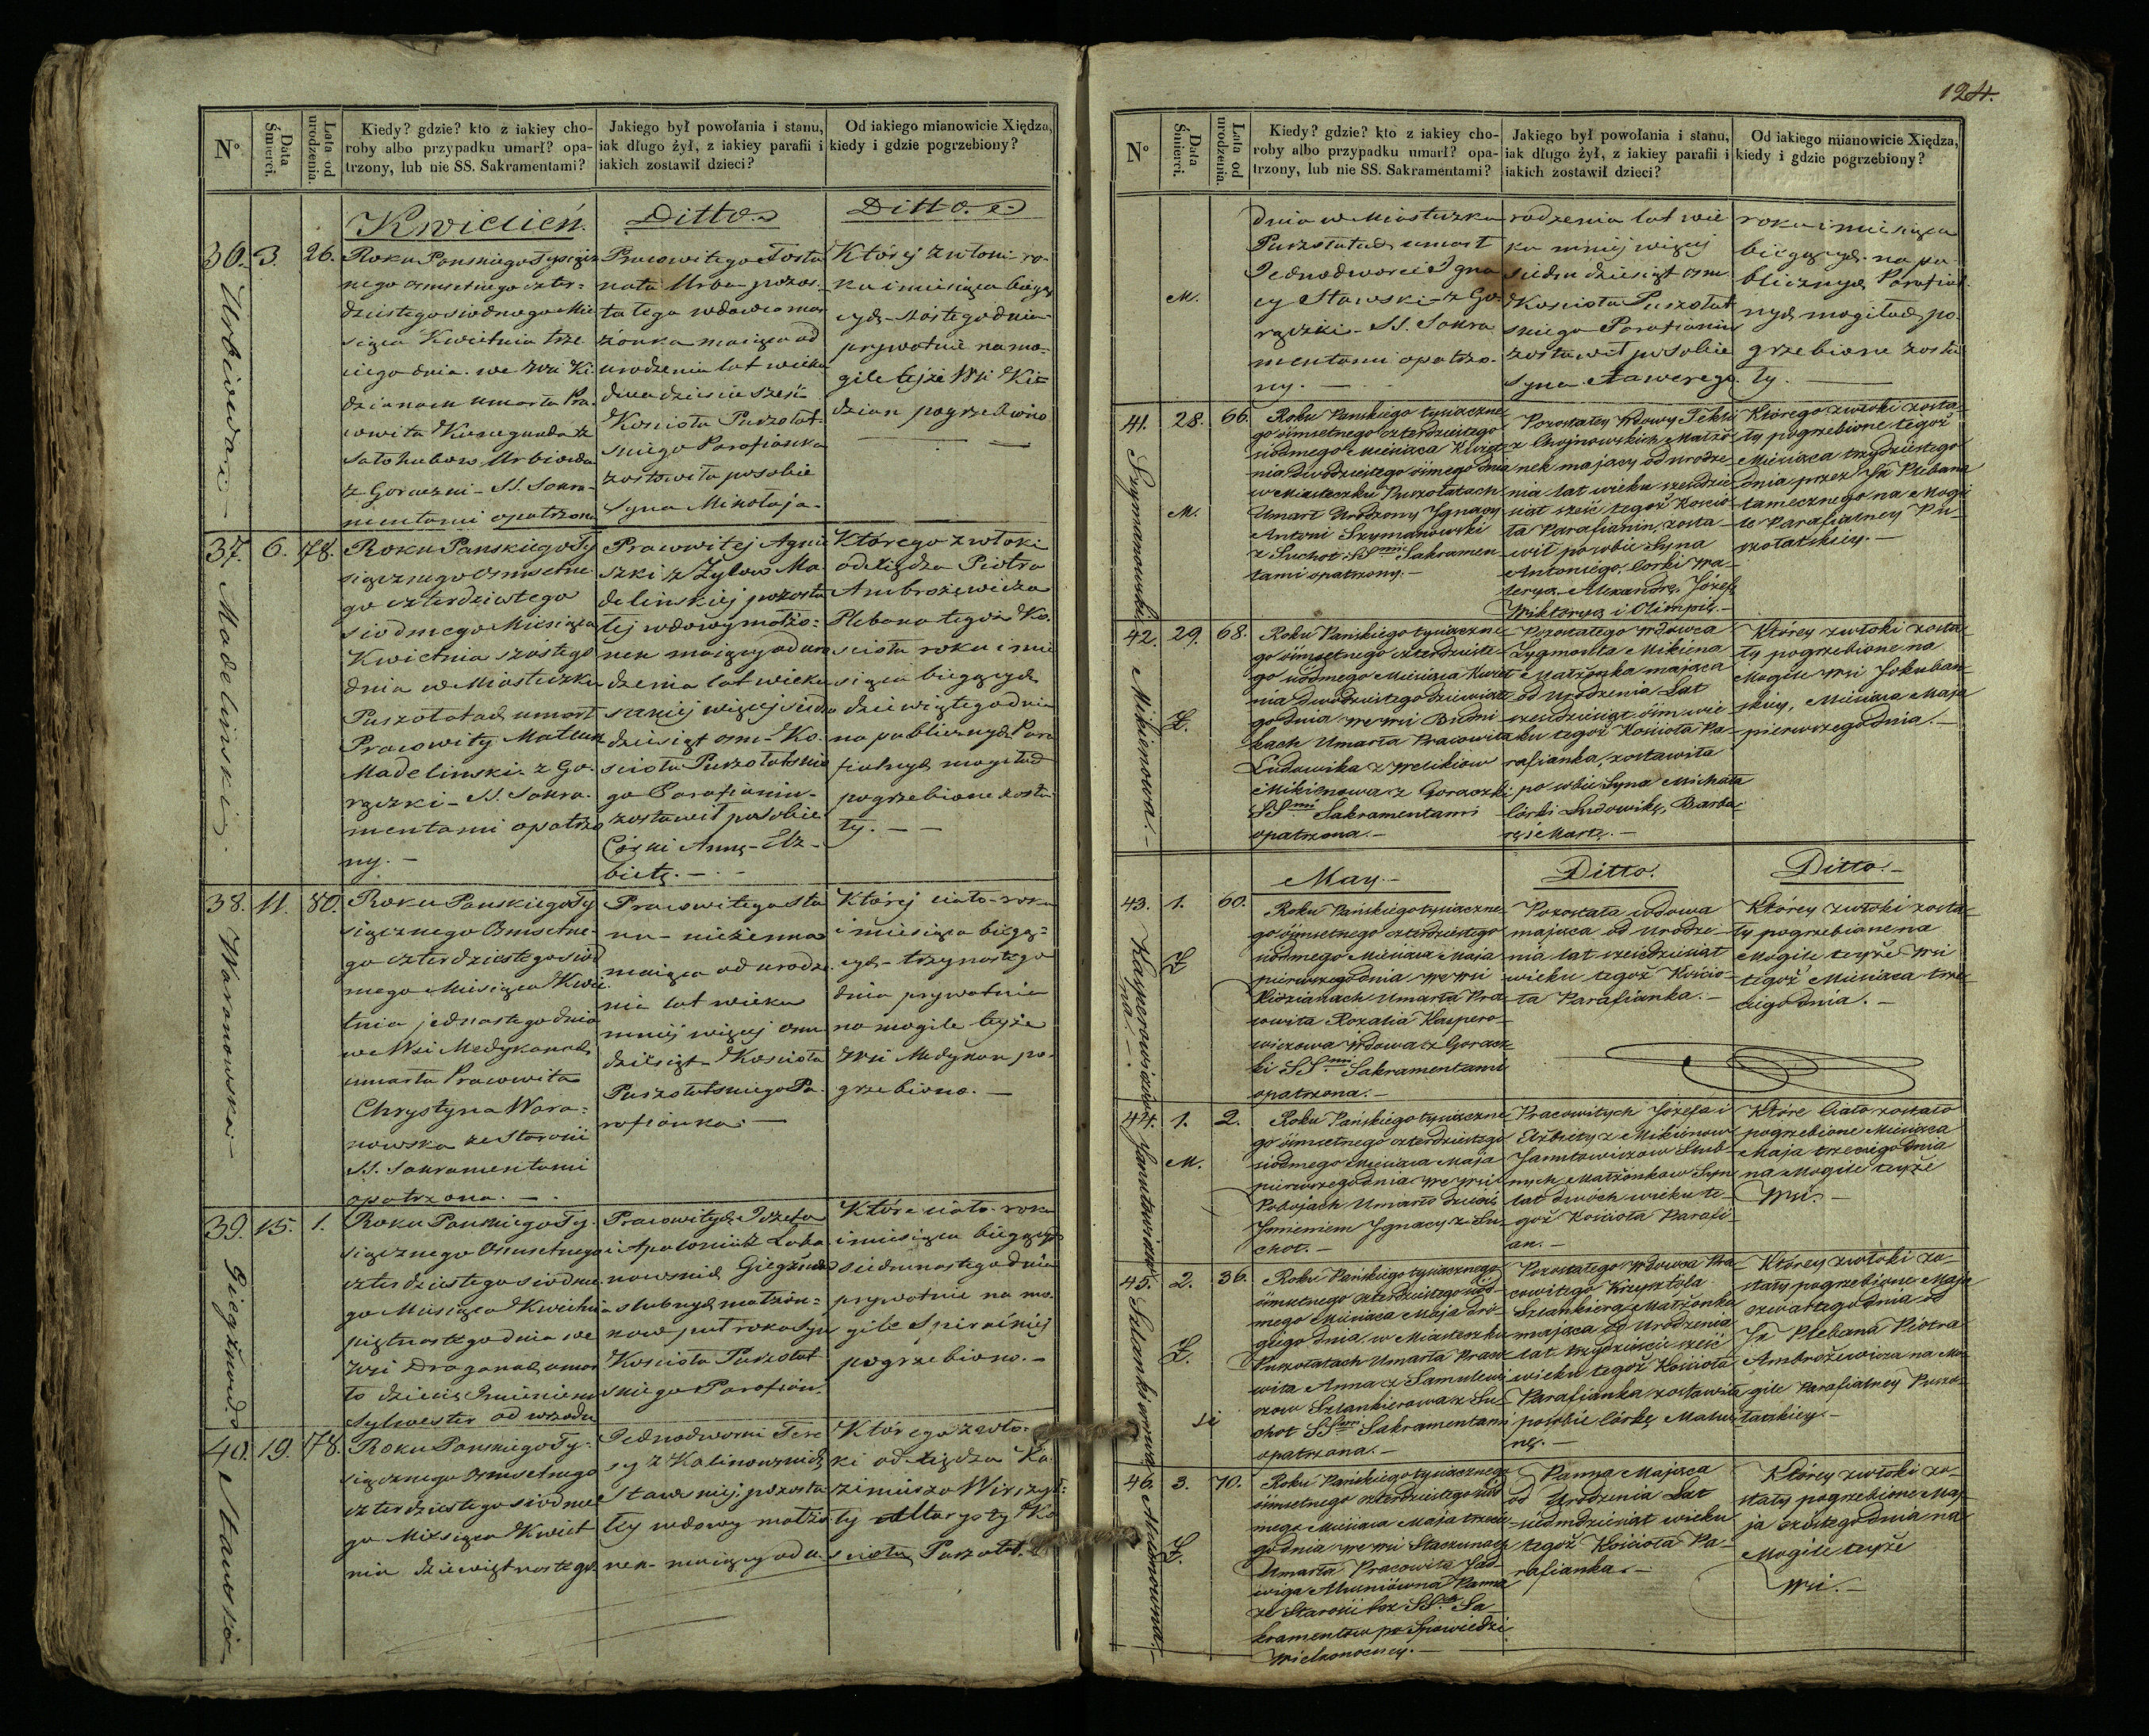 124.
N°
Data Śmierci.
Lata od urodzenia.
Kiedy? gdzie? kto z iakiey cho-
roby albo przypadku umarł? opa-
trzony, lub nie SS. Sakramentami?
Jakiego był powołania i stanu,
iak długo żył, z iakiey parafii i
iakich zostawił dzieci?
Od iakiego mianowicie Xiędza,
kiedy i gdzie pogrzebiony?
Kwiecień.
Ditto.
Ditto.
3.
26.
Roku Panskiego Tysiącz
nego osmsetnego czter-
dziestego siodmego Mie
siąca Kwietnia trze
ciego dnia we Wsi Ki
dzianach umarła Pra-
cowita Kunegunda z
Urbiowda
z Gorączki - SS. Sakra-
mentami opatrzona
Pracowitego
nata Urba- pozos-
tałego wdowca mał
żonka maiąca od
urodzenia lat wieku
dwadzieście sześć
Kościoła Puszołat-
skiego Parafianka
zostawiła po sobie
Syna Mikołaja-
Której zwłoki ro-
ku i miesiąca bieżą
cych szóstego dnia
prywatnie na mo-
gile tejże Wsi Ki-
dzian pogrzebiono
37.
6.
78.
Madelinski.
Roku Panskiego Ty
siącznego Osmsetne-
go czterdziestego
siodmego Miesiąca
Kwietnia szostego
dnia w Miasteczku
Puszołatach umarł
Pracowity Mateusz
Madelinski z Go-
rączki - SS. Sakra-
mentami opatrzo
ny. -
Pracowitej Agnie
szki z Żyłow Ma-
delinskiej pozosta
łej wdowy małżo-
nek maiący od uro
dzenia lat wieku
mniej więcej siedm
dziesiąt osm - Ko-
ścioła Puszołatskie
go Parafianin-
zostawił po sobie
Córki Annę - Elż-
bietę. -
Którego zwłoki
od Xiędza Piotra
Ambrożewicza
Plebana tegoż Ko-
ścioła roku i mie
siąca bieżących
dziewiątego dnia
na publicznych Para
fialnych mogiłach
pogrzebione zosta
ły. -
38.
11.
80.
Waranowska
Roku Panskiego Ty
siącznego Osmsetne-
go czterdziestego siod
mego Miesiąca Kwie
tnia jednastego dnia
we Wsi Medykanach
umarła Pracowita
Chrystyna Wara-
nowska ze Starości
SS. Sakramentami
opatrzona. -
Pracowitego Sta
nu - niezienna
maiąca od urodze-
nia lat wieku
mniej więcej osm
dziesiąt - Kościoła
Puszołatskiego Pa-
rafianka. -
Której ciało - roku
i miesiąca bieżą-
cych - trzynastego
dnia prywatnie
na mogile tejże
Wsi Medykan po-
grzebiono. -
39.
15.
1.
Giegżnud.
Roku Panskiego Ty-
siącznego Osmsetnego
czterdziestego siodme
go Miesiąca Kwietnia
piętnastego dnia we
Wsi Draganach umar
ło dziecię Imieniem
Sylwester od wrzodu
Pracowitych Jozefa
i Apolonii z Laba
nowskich Giegżnud
slubnych małżon-
kow puł roku Syn
Kościoła Puszołat
skiego Parafian.
Które ciało - roku
i miesiąca bieżących
siedmnastego dnia
prywatnie na mo-
gile Spirańskiej
pogrzebiono. -
40.
19.
78.
Stawski
Roku Panskiego Ty-
siącznego Osmsetnego
czterdziestego siodme
go Miesiąca Kwiet
nia dziewiętnastego
Jednodworki Tere
sy z Kalinowskich
Stawskiej pozosta
łey wdowy małżo
nek - maiący od u-
Którego zwło-
ki od Xiędza Ka-
zimierza Wirszył-
ły Altarysty Ko
ścioła Puszołat-
N°
Data Śmierci.
Lata od urodzenia.
Kiedy? gdzie? kto z iakiey cho-
roby albo przypadku umarł? opa-
trzony, lub nie SS. Sakramentami?
Jakiego był powołania i stanu,
iak długo żył, z iakiey parafii i
iakich zostawił dzieci?
Od iakiego mianowicie Xiędza,
kiedy i gdzie pogrzebiony?
M.
dnia w Miasteczku
Puszołatach umarł
Jednodworzec Igna
cy Stawski - z Go-
rączki - SS. Sakra
mentami opatrzo-
ny. -
rodzenia lat wie
ku mniej więcej
siedm dziesiąt osm
Kościoła Puszołat
skiego Parafianin
zostawił po sobie
syna Xawerego.
roku i miesiąca
bieżących na pu-
blicznych Parafial
nych mogiłach po-
grzebione zosta
ły. -
41.
28.
66.
M.
Szymanowski
Roku Pańskiego tysiączne
go ósmsetnego czterdziestego
siódmego Miesiąca Kwiet-
nia Dwudziestego ósmego dnia
w Miasteczku Puszołatach
Umarł Urodzony Ignacy
Antoni Szymanowski
z Suchot. SSmi Sakramen-
tami opatrzony. -
Pozostałey Wdowy Tekli
z Chojnowskich Małżo-
nek mający od urodze-
nia lat wieku sześdzie-
siąt sześć tegoż Kościo-
ła Parafianin, zosta-
wił po sobie Syna
Antoniego, Corki Wa-
leryą, Alexandrę, Józefę
Wiktoryą i Olimpię. -
Którego zwłoki zosta-
ły pogrzebione tegoż
Miesiąca trzydziestego
dnia przez JX Plebana
tamecznego na Mogi-
le Parafialney Pu-
szołatskiey. -
42.
29.
68.
Ż.
Mikienowa. -
Roku Pańskiego tysiączne-
go ósmsetnego czterdzieste-
go siódmego Miesiąca Kwiet
nia Dwudziestego dziewiąte
go dnia we wsi Bildni-
kach Umarła Pracowita
Ludowika z Welikiow
Mikienowa z Gorączki
SSmi Sakramentami
opatrzona. -
Pozostałego Wdowca
Zygmonta Mikiena
Małżonka mająca
od Urodzenia Lat
sześdziesiąt ósm wie
ku tegoż Kościoła Pa-
rafianka, zostawiła
po sobie Syna Michała
Córki Ludowikę, Barba-
rę i Martę. -
Którey zwłoki zosta-
ły pogrzebione na
Mogile wsi Jokuban-
skiey, Miesiąca Maja
pierwszego dnia. -
May. -
Ditto.
Ditto. -
43.
1.
60.
Ż.
Kasperowiczo
wa. -
Roku Pańskiego tysiączne-
go ósmsetnego czterdziestego
siódmego Miesiąca Maja
pierwszego dnia we wsi
Kidzianach Umarła Pra-
cowita Rozalia Kaspero-
wiczowa Wdowa z Gorącz-
ki SSmi Sakramentami
opatrzona. -
Pozostała wdowa
mająca od Urodze-
nia lat sześdziesiąt
wieku tegoż Kościo-
ła Parafianka. -
Którey zwłoki zosta-
ły pogrzebione na
Mogile teyże wsi
tegoż Miesiąca trze
ciego dnia. -
44.
1.
2.
M.
Roku Pańskiego tysiączne
go ósmsetnego czterdziestego
siódmego Miesiąca Maja
pierwszego dnia we wsi
Pobojach Umarło dziecię
Imieniem Ignacy z Su-
chot. -
Pracowitych Józefa i
Elżbiety z Mikienow
Jamutowiczow Ślub-
nych Małżonkow Syn
lat dwoch wieku te-
goż Kościoła Parafi-
an. -
Które Ciało zostało
pogrzebione Miesiąca
Maja trzeciego dnia
na Mogile teyże
Wsi. -
45.
2.
36.
Ż.
Szlankierowa
Roku Pańskiego tysiącznego
ósmsetnego czterdziestego siód-
mego Miesiąca Maja dru-
giego dnia w Miasteczku
Puszołatach Umarła Praco
wita Anna z Samulewi
czow Szlankierowa z Su-
chot SSmi Sakramentami
opatrzona. -
Pozostałego Wdowca Pra
cowitego Krzysztofa
Szlankiera Małżonka
mająca od Urodzenia
lat trzydzieście sześć
wieku tegoż Kościoła
Parafianka zostawiła
po sobie Córkę
nę. -
Którey zwłoki zo-
stały pogrzebione Maja
czwartego dnia od
JX Plebana Piotra
Ambrożewicza na Mo-
gile Parafialney Puszo-
łatskiey. -
46.
3.
70.
Ż.
Roku Pańskiego tysiącznego
ósmsetnego czterdziestego siód
mego Miesiąca Maja trzecie-
go dnia we wsi Staczunach
Umarła Pracowita Jad-
wiga Panna
ze Starości bez SS. Sa-
kramentów po Spowiedzi
Wielkonocney. -
Panna Mająca
od Urodzenia Lat
siedmdziesiąt wieku
tegoż Kościoła Pa-
rafianka. -
Którey zwłoki zo-
stały pogrzebione Ma-
ja szóstego dnia na
Mogile teyże
Wsi. -